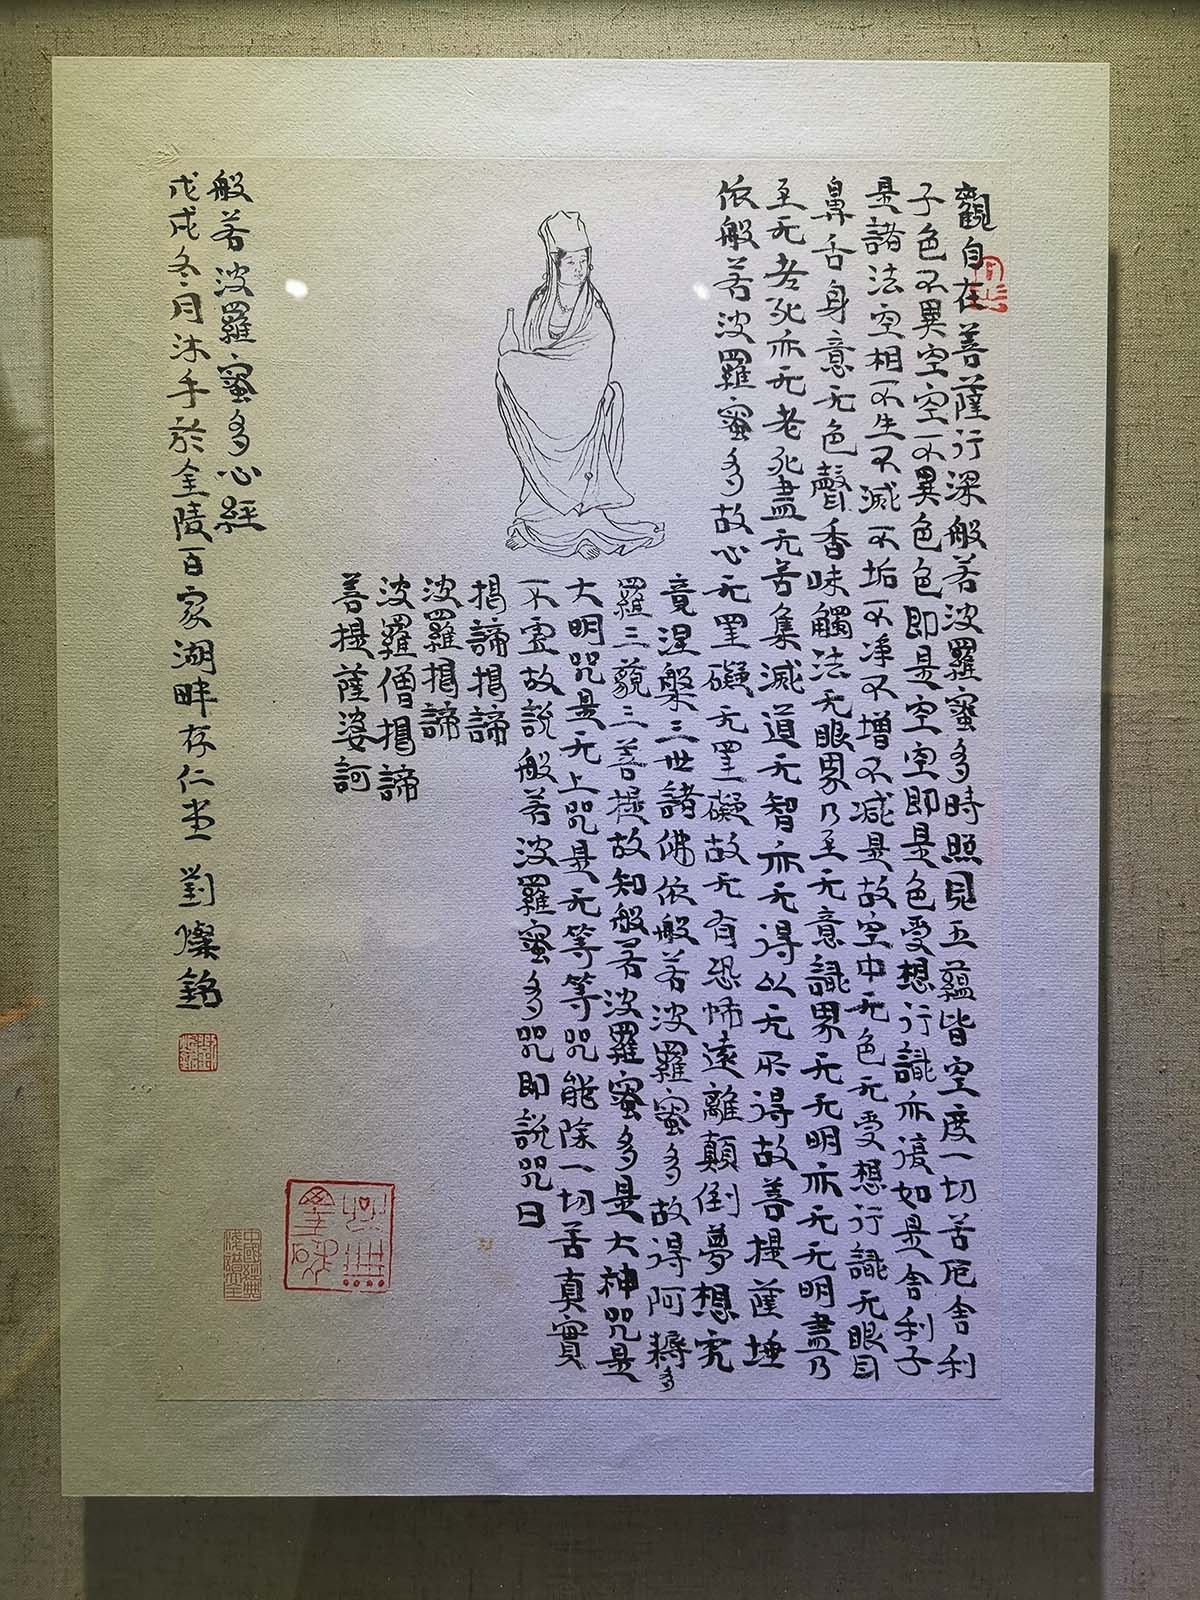 觀自在菩薩行深般若波羅蜜多時照見五蘊皆空度一切苦厄舍利
子色不異空空不異色色即是空空即是色受想行識亦復如是舍利子
是諸法空相不生不滅不垢不淨不增不减是故空中无色无受想行識无眼耳
鼻舌身意无色聲香味觸法无眼界乃至无意識界无无明亦无无明盡乃
至无老死亦无老死盡无苦集滅道无智亦无得以无所得故菩提薩埵
依般若波羅蜜多故心无罣礙无罣礙故无有恐怖遠離顛倒夢想究
竟涅槃三世諸佛依般若波羅蜜多故得阿耨多
羅三藐三菩提故知般若波羅蜜多是大神咒是
大明咒是无上咒是无等等咒能除一切苦真實
不虛故說般若波羅蜜多咒即說咒曰
揭諦揭諦
波羅揭諦
波羅僧揭諦
菩提薩婆訶
般若波羅蜜多心經
戊戌冬月沐手於金陵百家湖畔存仁堂 劉燦銘